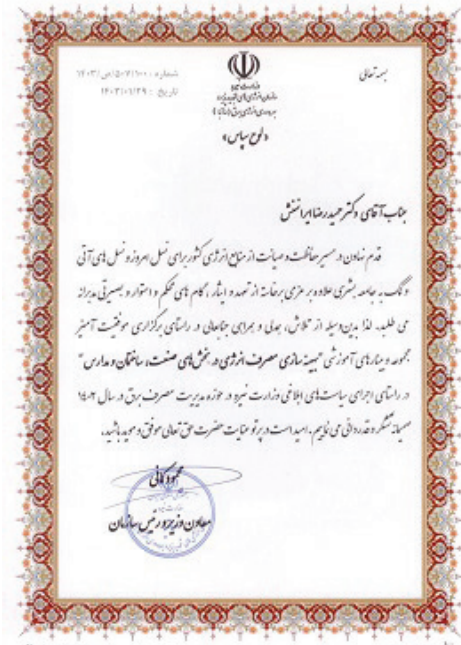 بسمه تعالی
شماره : ۱۴۰۳/ص/۵۰۷/۱۰۰
تاریخ : ۱۴۰۳/۰۱/۲۹
وزارت نیرو
سازمان انرژی های تجدیدپذیر و
بهره وری انرژی برق (ساتبا)
«لوح سپاس»
جناب آقای دکتر حمیدرضا ایرانمنش
قدم نهادن در مسیر حفاظت و صیانت از منابع انرژی کشور برای نسل امروز و نسل های آتی
و کمک به جامعه بشری علاوه بر عزمی برخاسته از تعهد و ایثار، گام های محکم و استوار و بصیرتی مدبرانه
می طلبد. لذا بدین وسیله از تلاش، همدلی و همراهی جنابعالی در راستای برگزاری موفقیت آمیز
مجموعه وبینارهای آموزشی "بهینه سازی مصرف انرژی در بخش های صنعت، ساختمان و مدارس"
در راستای اجرای سیاست های ابلاغی وزارت نیرو در حوزه مدیریت مصرف برق در سال ۱۴۰۲
صمیمانه تشکر و قدردانی می نماییم. امید است در پرتو عنایت حضرت حق تعالی موفق و موید باشید.
محمود کمانی
معاون وزیر و رئیس سازمان